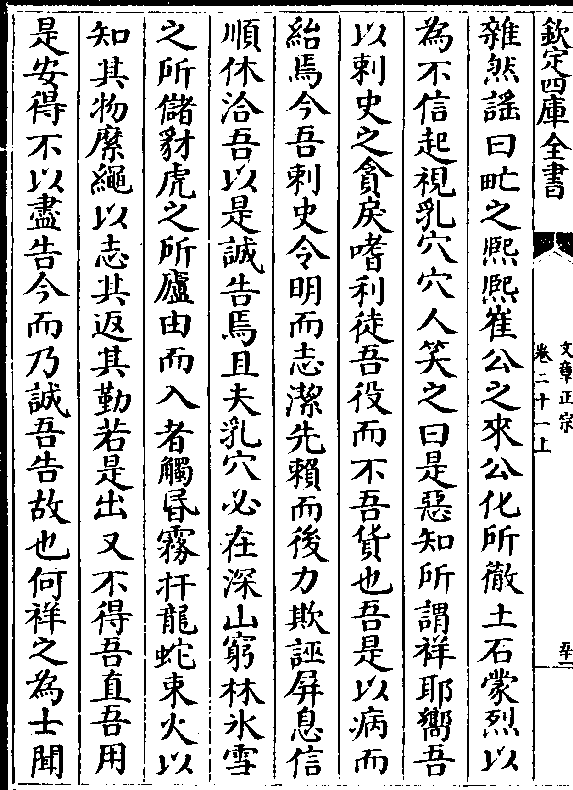 欽定四庫全書
文章正宗
卷二十一上
雜然謡曰甿之熙熙崔公之來公化所徹土石蒙烈以
為不信起視乳穴穴人笑之曰是惡知所謂祥耶嚮吾
以刺史之貪戾嗜利徒吾役而不吾貨也吾是以病而
紿焉今吾刺史令明而志潔先賴而後力欺誣屏息信
順休洽吾以是誠告焉且夫乳穴必在深山窮林氷雪
之所儲豺虎之所廬由而入者觸昏霧扞龍蛇束火以
知其物縻繩以志其返其勤若是出又不得吾直吾用
是安得不以盡告今而乃誠吾告故也何祥之為士聞